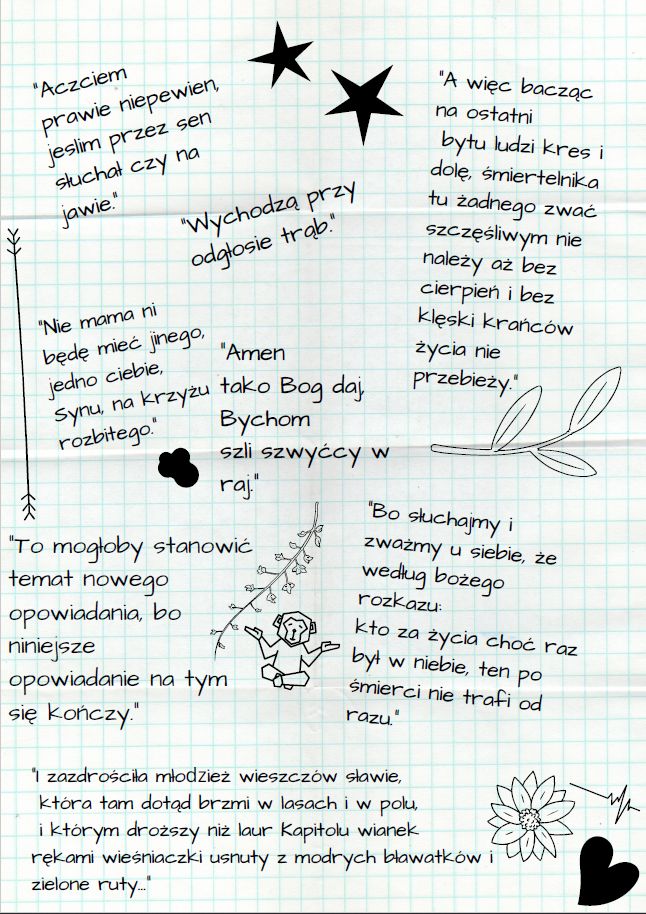 "Aczciem
prawie niepewien,
jeslim przez sen
słuchał czy na
jawie."
"A więc bacząc
na ostatni
bytu ludzi kres i
dolę, śmiertelnika
tu żadnego zwać
szczęśliwym nie
należy aż bez
cierpień i bez
klęski krańców
życia nie
przebieży."
"Wychodzą przy
odgłosie trąb."
"Nie mama ni
będę mieć jinego,
jedno ciebie,
Synu, na krzyżu
rozbitego."
"Amen
tako Bog daj,
Bychom
szli szwyćcy w
raj."
"To mogłoby stanowić
temat nowego
opowiadania, bo
niniejsze
opowiadanie na tym
się kończy."
"Bo słuchajmy i
zważmy u siebie, że
według bożego
rozkazu:
kto za życia choć raz
był w niebie, ten po
śmierci nie trafi od
razu."
"I zazdrościła młodzież wieszczów sławie,
która tam dotąd brzmi w lasach i w polu,
i którym droższy niż laur Kapitolu wianek
rękami wieśniaczki usnuty z modrych bławatków i
zielone ruty..."